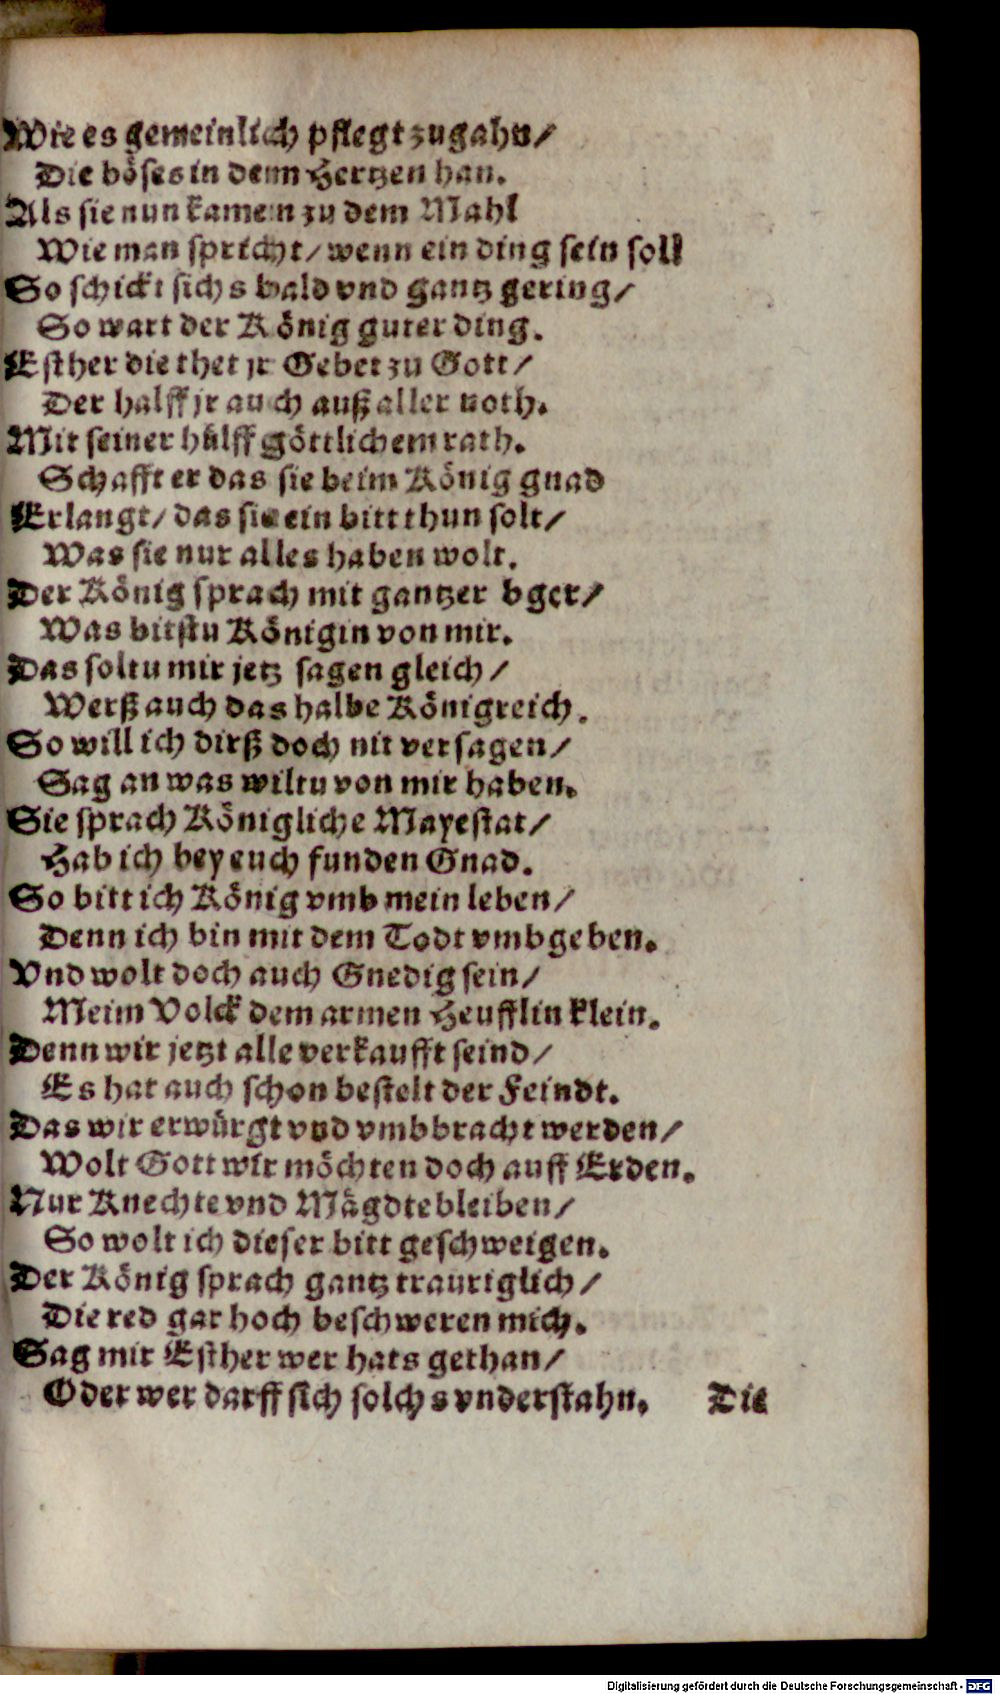 Wie es gemeinlich pflegt zugahn/
Die böses in denn Hertzen han.
Als sie nun kamen zu dem Mahl
Wie man spricht/ wenn ein ding sein soll
So schickt sichs bald vnd gantz gering/
So wart der König guter ding.
Esther die thet jr Gebet zu Gott/
Der halff jr auch auß aller noth.
Mit seiner hülff göttlichem rath.
Schafft er das sie beim König gnad
Erlangt/ das sie ein bitt thun solt/
Was sie nur alles haben wolt.
Der König sprach mit gantzer bger/
Was bitstu Königin von mir.
Das soltu mir jetz sagen gleich/
Werß auch das halbe Königreich.
So will ich dirß doch nit versagen/
Sag an was wiltu von mir haben.
Sie sprach Königliche Mayestat/
Hab ich bey euch funden Gnad.
So bitt ich König vmb mein leben/
Denn ich bin mit dem Todt vmbgeben.
Vnd wolt doch auch Gnedig sein/
Meim Volck dem armen Heufflin klein.
Denn wir jetzt alle verkaufft seind/
Es hat auch schon bestelt der Feindt.
Das wir erwürgt vnd vmbbracht werden/
Wolt Gott wir möchten doch auff Erden.
Nur Knechte vnd Mägdte bleiben/
So wolt ich dieser bitt geschweigen.
Der König sprach gantz trauriglich/
Die red gar hoch beschweren mich.
Sag mir Esther wer hats gethan/
Oder wer darff sich solchs vnderstahn. Die
Digitalisierung gefördert durch die Deutsche Forschungsgemeinschaft - DFG